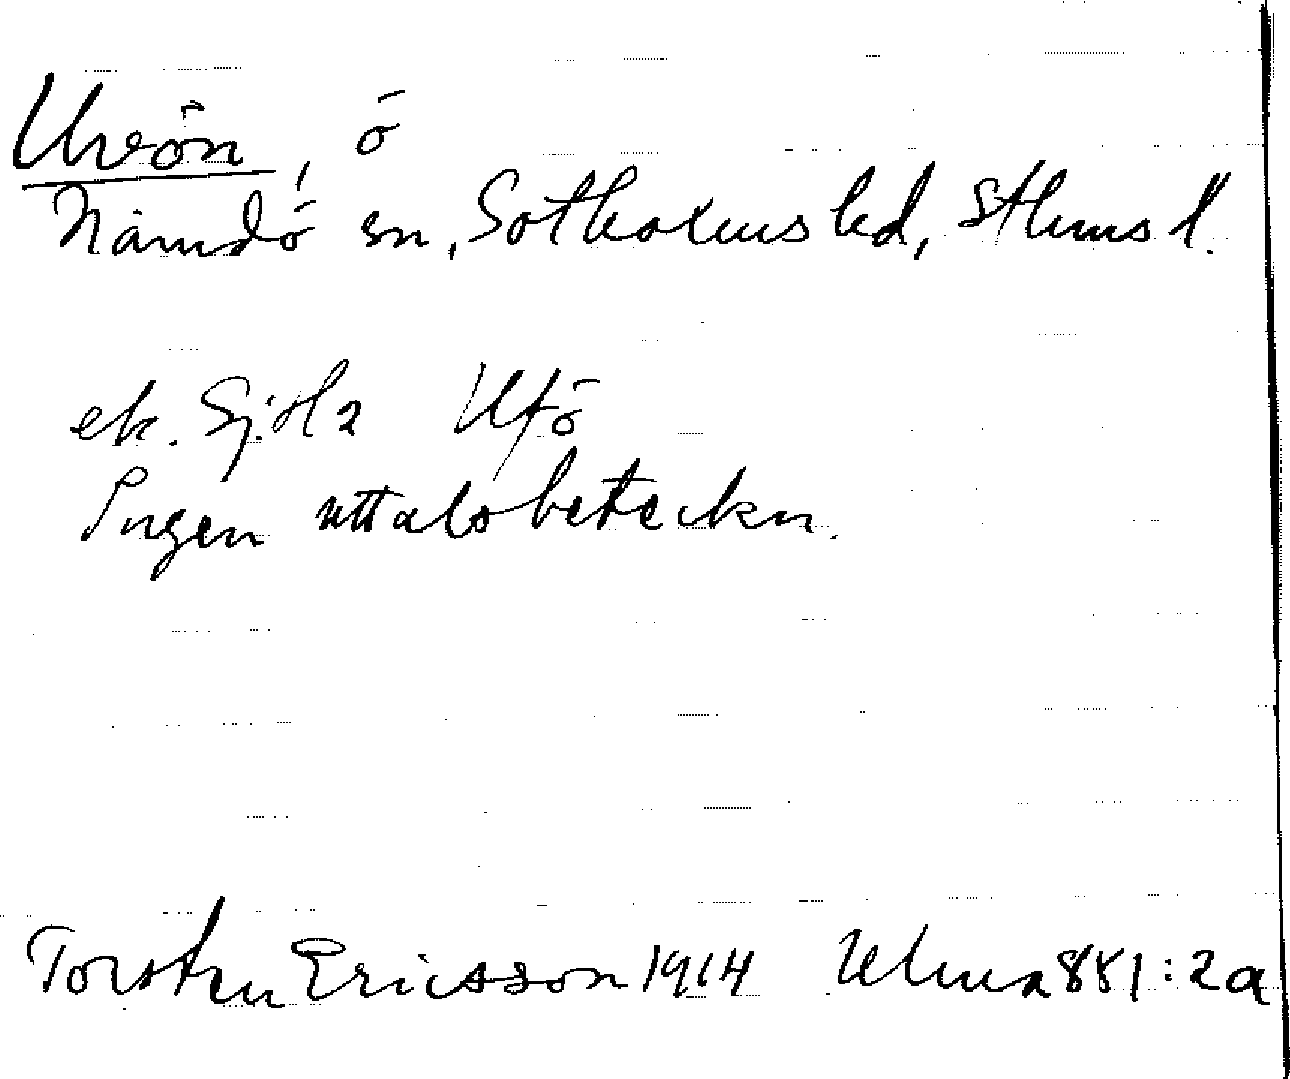 Urvön, ö
Nämdö sn, Sotholms hd, Sthms l.
ek. Sj.:H2 Utö
Ingen uttalsbeteckn.
Torsten Ericsson 1914 Ulma 881:2a